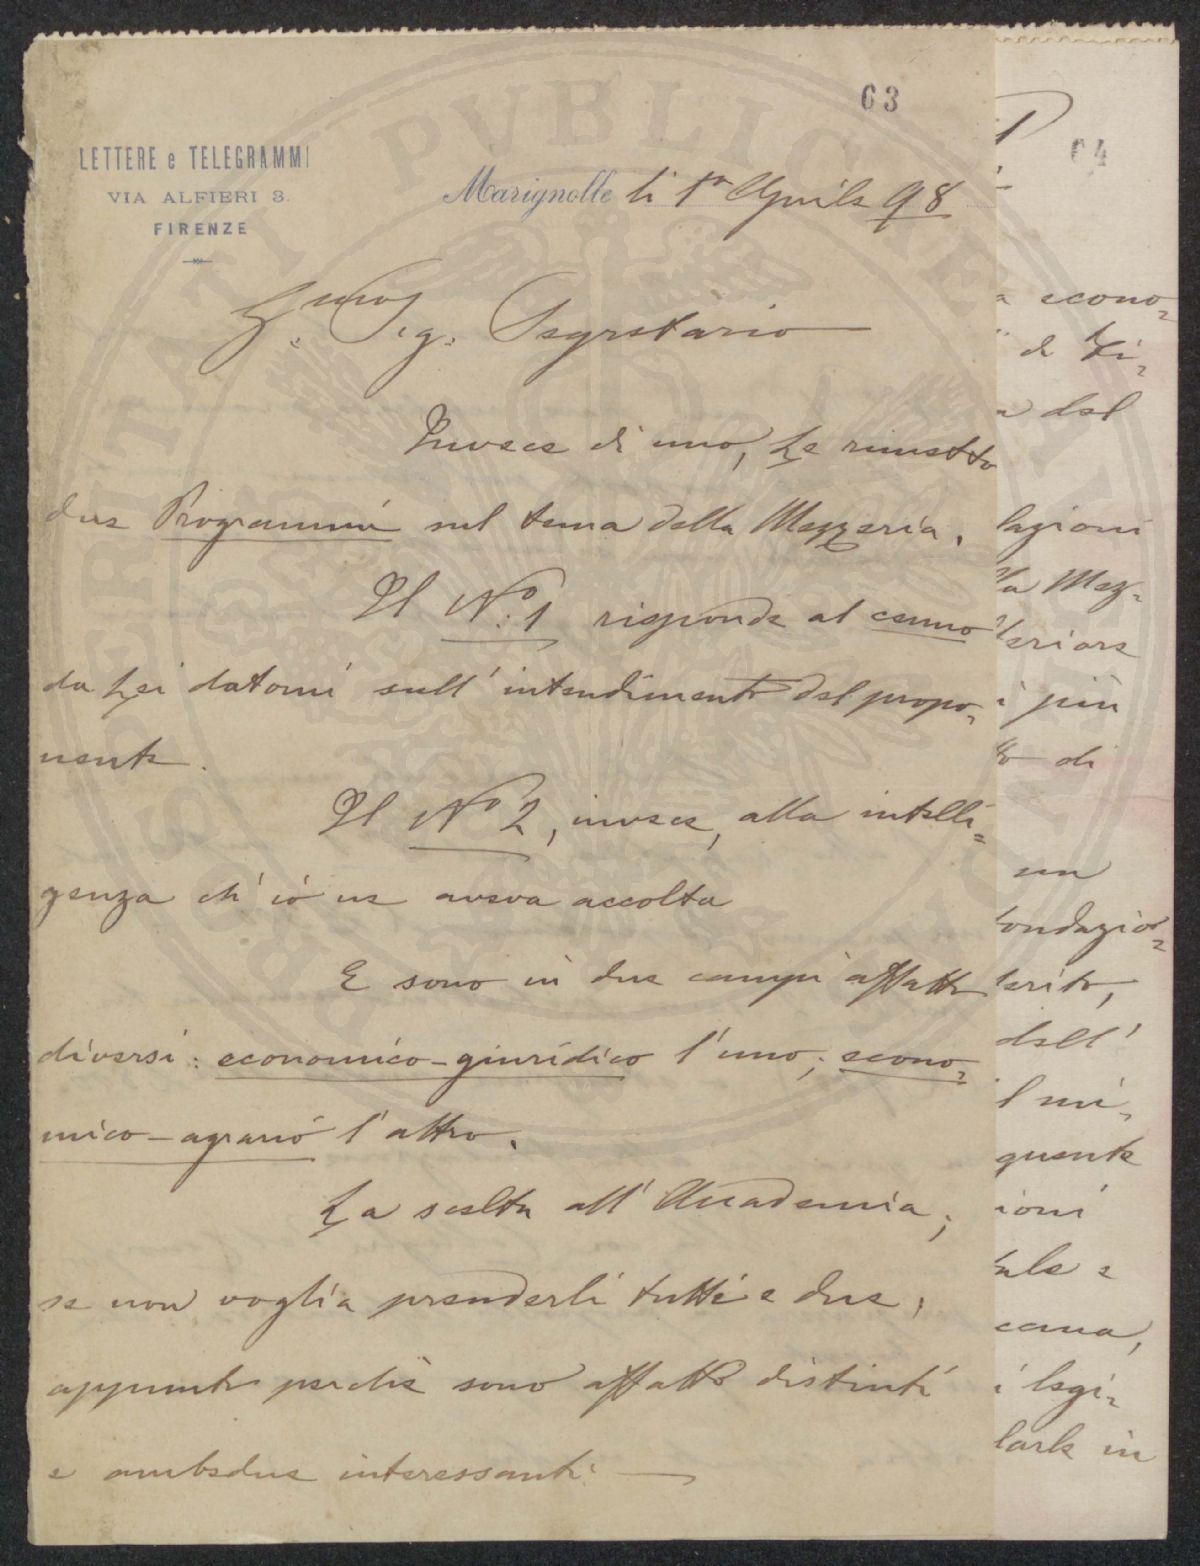 63
LETTERE e TELEGRAMMI
VIA ALFIERI 3.
FIRENZE
Marignolle li 1º Aprile 98
Ill.mo Sig. Segretario
Invece di uno, Le rimetto
due Programmi sul tema della Mezzeria.
Il Nº. 1 risponde al cenno
da Lei datomi sull'intendimento del propo=
nente.
Il Nº 2, invece, alla intelli=
genza ch'io ne aveva accolta
E sono in due campi affatto
diversi: economico-giuridico l'uno; econo=
mico-agrario l'altro.
La scelta all'Accademia;
se non voglia prenderli tutti e due,
appunto perchè sono affatto distinti
e ambedue interessanti.
64
a econo=
di Fi=
a del
lazioni
lla Mez=
teriore
i più
to di
un
fondazio=
terito,
dell'
l mi=
quente
ioni
tale e
cana,
i legi=
larle in
PVBLICAE